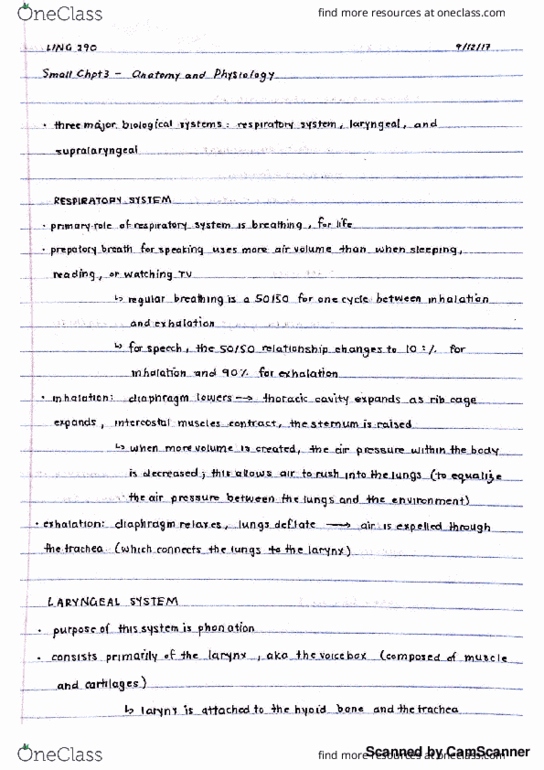 OneClass
find more resources at oneclass.com
LING 290
9/12/17
Small Chpt 3 - Anatomy and Physiology
• three major biological systems: respiratory system, laryngeal, and
supralaryngeal
RESPIRATORY SYSTEM
• primary role of respiratory system is breathing, for life
• prepatory breath for speaking uses more air volume than when sleeping,
reading, or watching TV
↳ regular breathing is a 50/50 for one cycle between inhalation
and exhalation
↳ for speech, the 50/50 relationship changes to 10% for
inhalation and 90% for exhalation
• inhalation: diaphragm lowers → thoracic cavity expands as rib cage
expands, intercostal muscles contract, the sternum is raised
↳ when more volume is created, the air pressure within the body
is decreased; this allows air to rush into the lungs (to equalize
the air pressure between the lungs and the environment)
• exhalation: diaphragm relaxes, lungs deflate → air is expelled through
the trachea (which connects the lungs to the larynx)
LARYNGEAL SYSTEM
• purpose of this system is phonation
• consists primarily of the larynx, aka the voicebox (composed of muscle
and cartilages)
↳ larynx is attached to the hyoid bone and the trachea
OneClass
find more resources at oneclass.com
Scanned by CamScanner